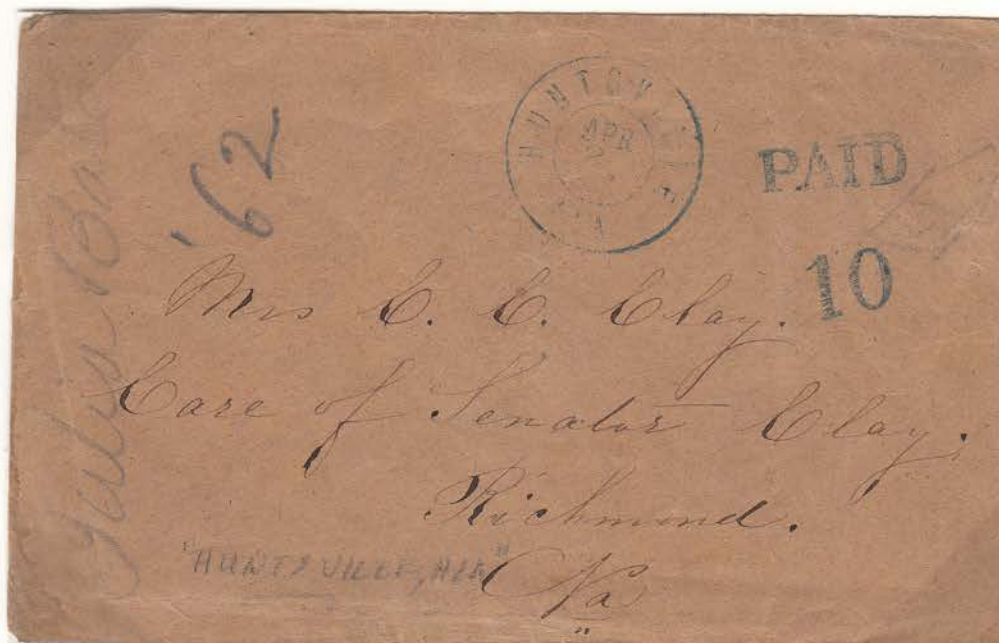 HUNTSVILLE
APR
PAID
10
'62
Mrs C. C. Clay.
Care of Senator Clay.
Richmond.
Va
"HUNTSVILLE, ALA"
Julia